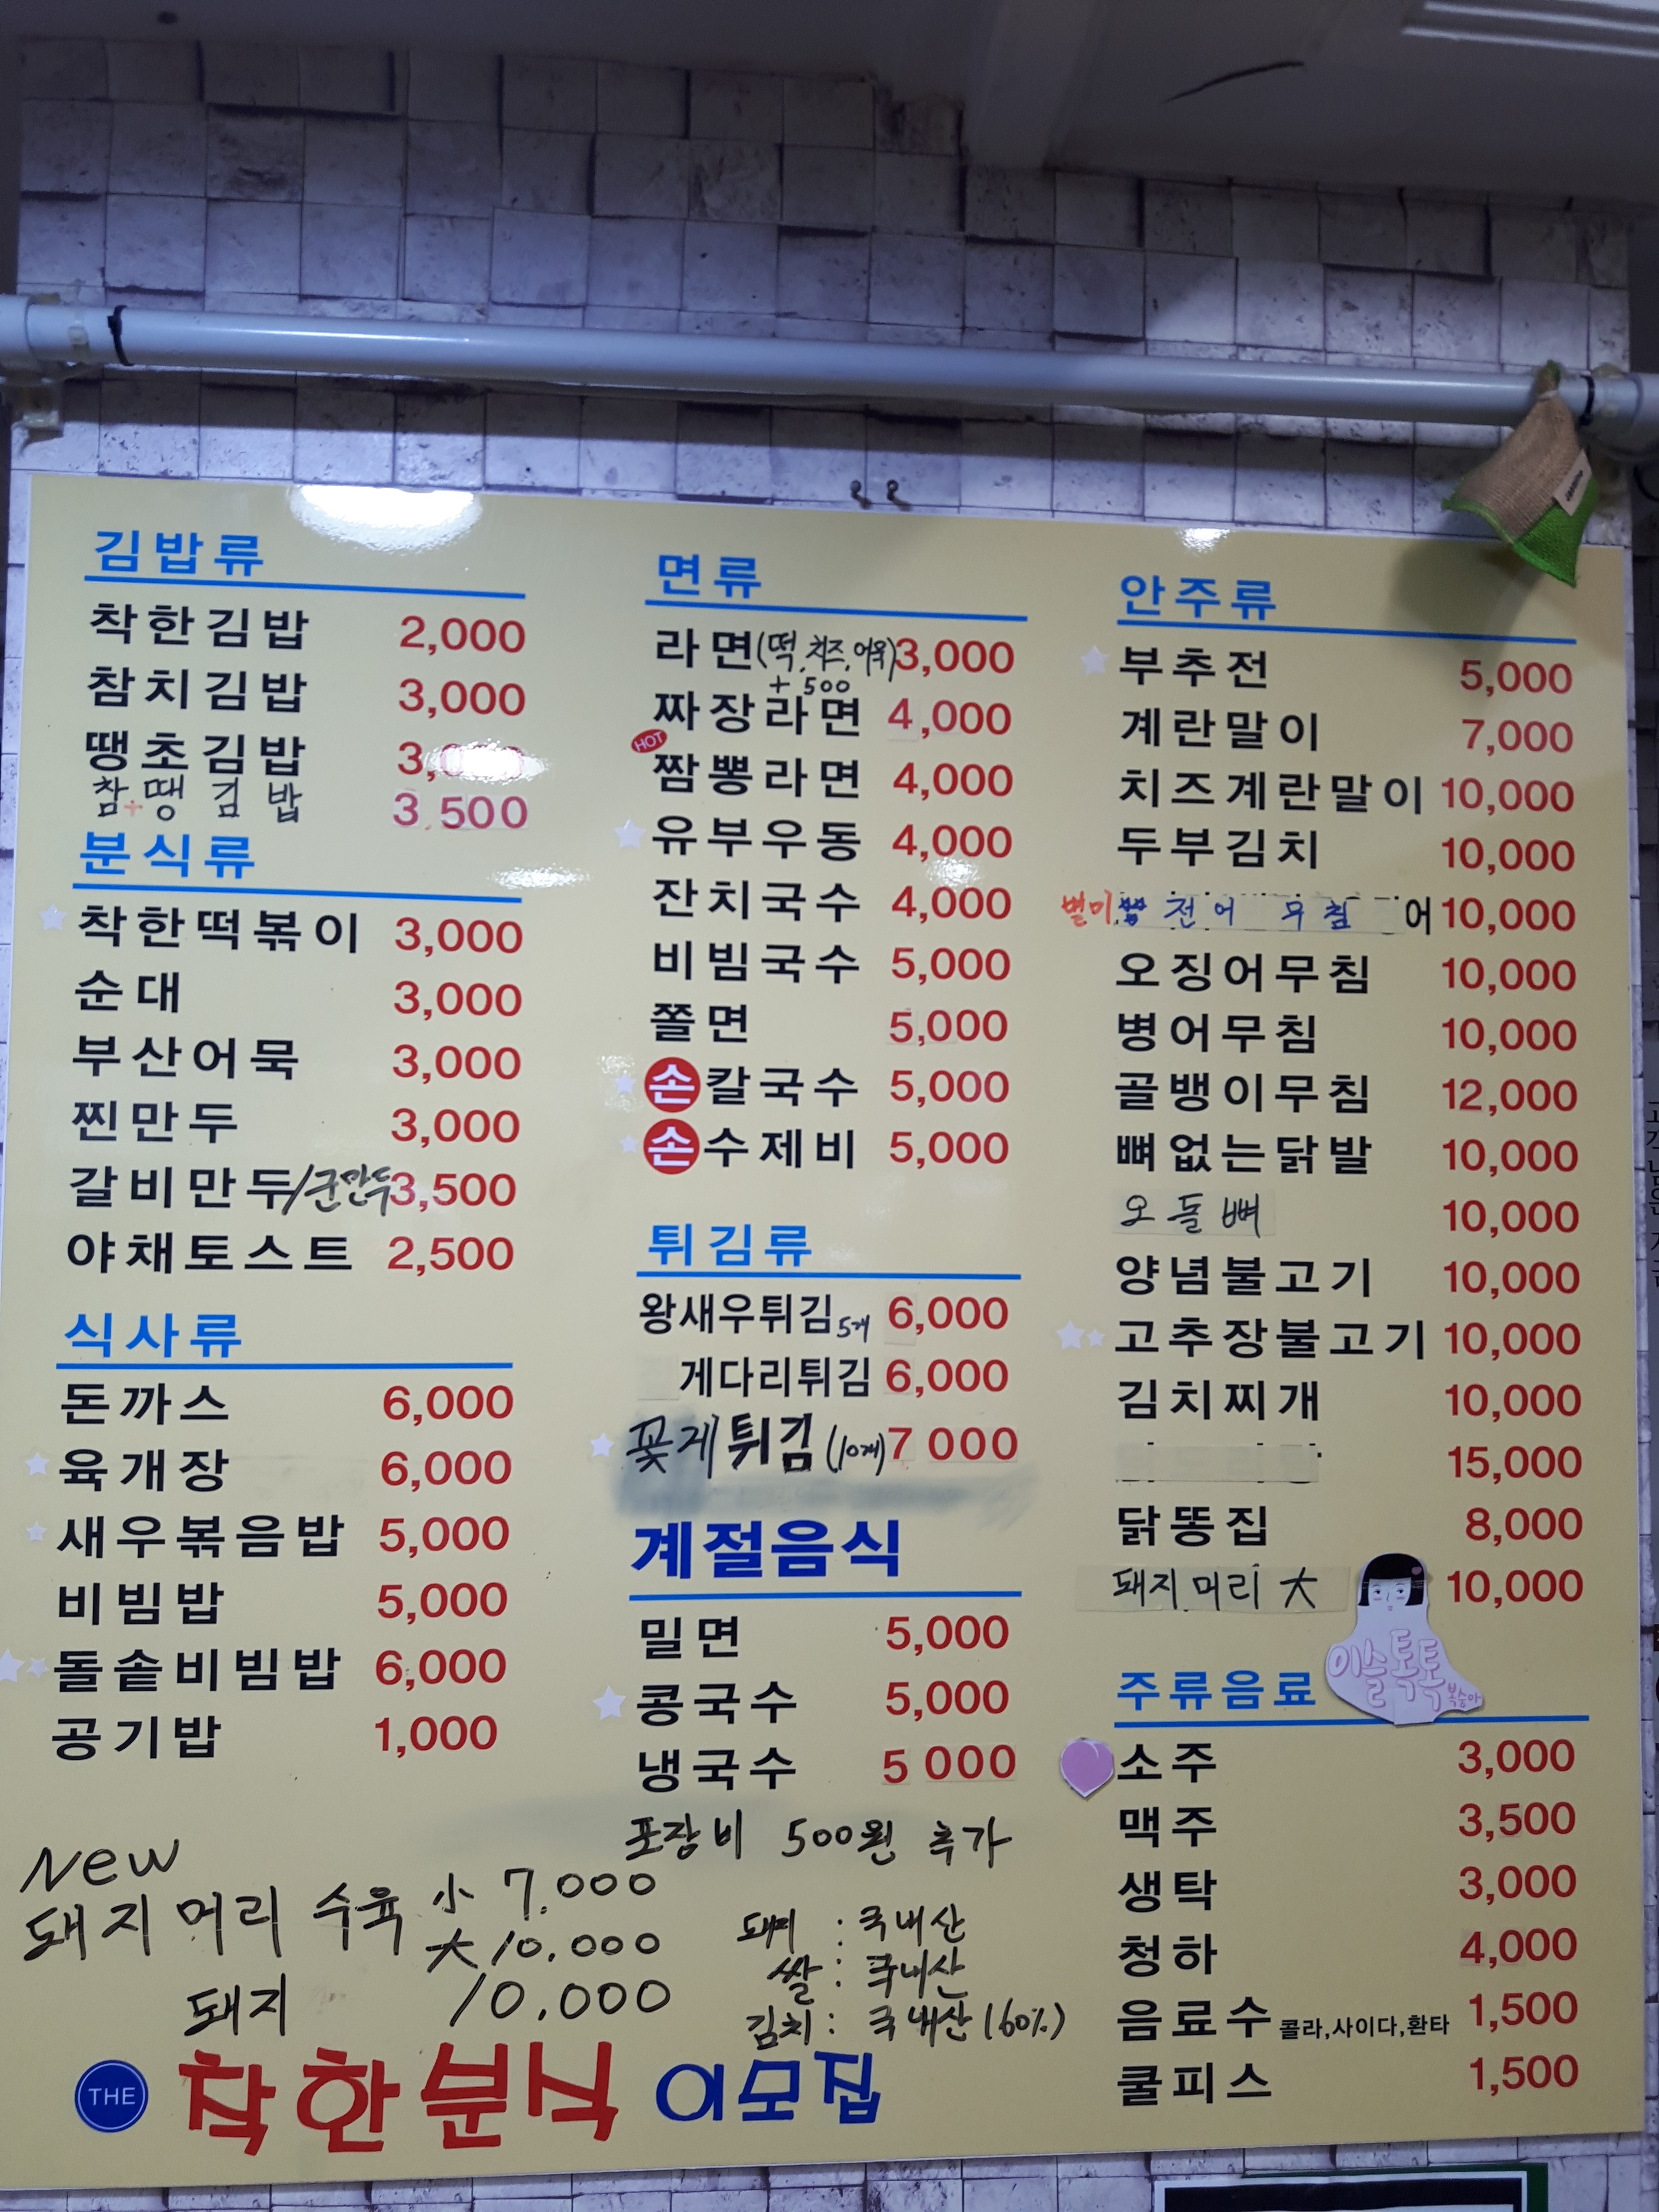 김밥류
착한김밥 2,000
참치김밥 3,000
땡초김밥 3,
참+땡 김밥 3,500
분식류
착한떡볶이 3,000
순대 3,000
부산어묵 3,000
찐만두 3,000
갈비만두/군만두 3,500
야채토스트 2,500
식사류
돈까스 6,000
육개장 6,000
새우볶음밥 5,000
비빔밥 5,000
돌솥비빔밥 6,000
공기밥 1,000
New
돼지 머리 수육 小 7.000
大 10.000
돼지 10,000
면류
라면(떡,치즈,어묵) 3,000
+500
짜장라면 4,000
HOT
짬뽕라면 4,000
유부우동 4,000
잔치국수 4,000
비빔국수 5,000
쫄면 5,000
손칼국수 5,000
손수제비 5,000
튀김류
왕새우튀김 5개 6,000
게다리튀김 6,000
꽃게튀김 (10개) 7 000
계절음식
밀면 5,000
콩국수 5,000
냉국수 5 000
포장비 500원 추가
돼지 : 국내산
쌀 : 국내산
김치 : 국내산(60%)
안주류
부추전 5,000
계란말이 7,000
치즈계란말이 10,000
두부김치 10,000
별미 전어 무침 어 10,000
오징어무침 10,000
병어무침 10,000
골뱅이무침 12,000
뼈없는닭발 10,000
오돌뼈 10,000
양념불고기 10,000
고추장불고기 10,000
김치찌개 10,000
15,000
닭똥집 8,000
돼지머리 大 10,000
이슬톡톡 복숭아
주류음료
소주 3,000
맥주 3,500
생탁 3,000
청하 4,000
음료수 콜라,사이다,환타 1,500
쿨피스 1,500
THE 착한분식 이모집